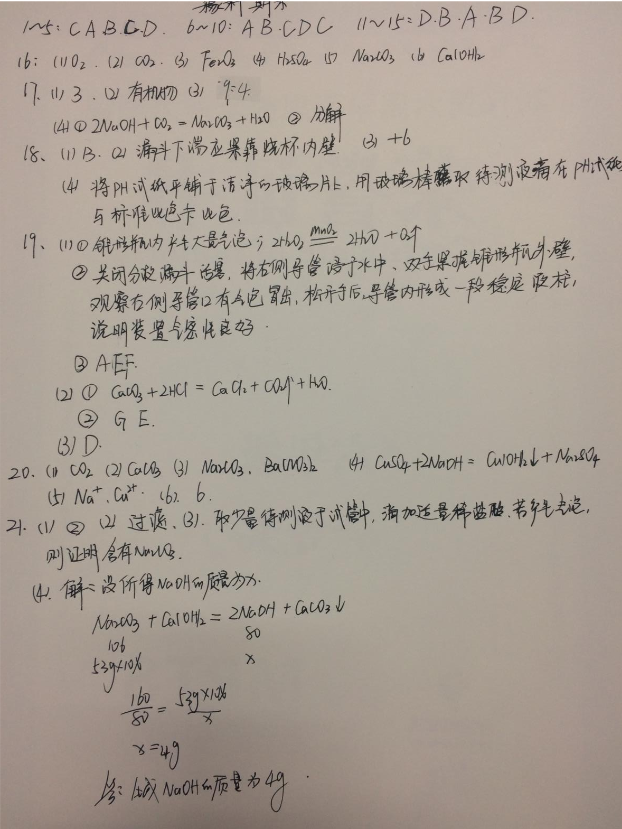 1~5: C A B C D. 6~10: A B C D C 11~15: D.B.A.B D.
16: (1) O2. (2) CO2. (3) Fe2O3 (4) H2SO4 (5) Na2CO3 (6) Ca(OH)2
17. (1) 3. (2) 有机物 (3) 9:4.
(4) ① 2NaOH + CO2 = Na2CO3 + H2O ② 分解
18. (1) B. (2) 漏斗下端应紧靠烧杯内壁 (3) +6
(4) 将PH试纸平铺于洁净的玻璃片上, 用玻璃棒蘸取待测液滴在PH试纸
与标准比色卡比色.
19. (1) ① 锥形瓶内产生大量气泡; 2H2O2 MnO2 2H2O + O2↑
② 关闭分液漏斗活塞, 将右侧导管浸于水中、双手紧握锥形瓶外壁,
观察右侧导管口有气泡冒出, 松开手后导管内形成一段稳定液柱,
说明装置气密性良好.
③ A E F.
(2) ① CaCO3 + 2HCl = CaCl2 + CO2↑ + H2O.
② G E.
(3) D.
20. (1) CO2 (2) CaCO3 (3) Na2CO3、Ba(NO3)2 (4) CuSO4 + 2NaOH = Cu(OH)2↓ + Na2SO4
(5) Na+、Cu2+ (6) 6.
21. (1) ② (2) 过滤、(3). 取少量待测液于试管中, 滴加适量稀盐酸, 若产生气泡,
则证明含有Na2CO3.
(4). 解: 设所得NaOH的质量为x.
Na2CO3 + Ca(OH)2 = 2NaOH + CaCO3↓
106 80
53g×10% x
160/80 = 53g×10%/x
x=4g
答: 生成NaOH的质量为4g.